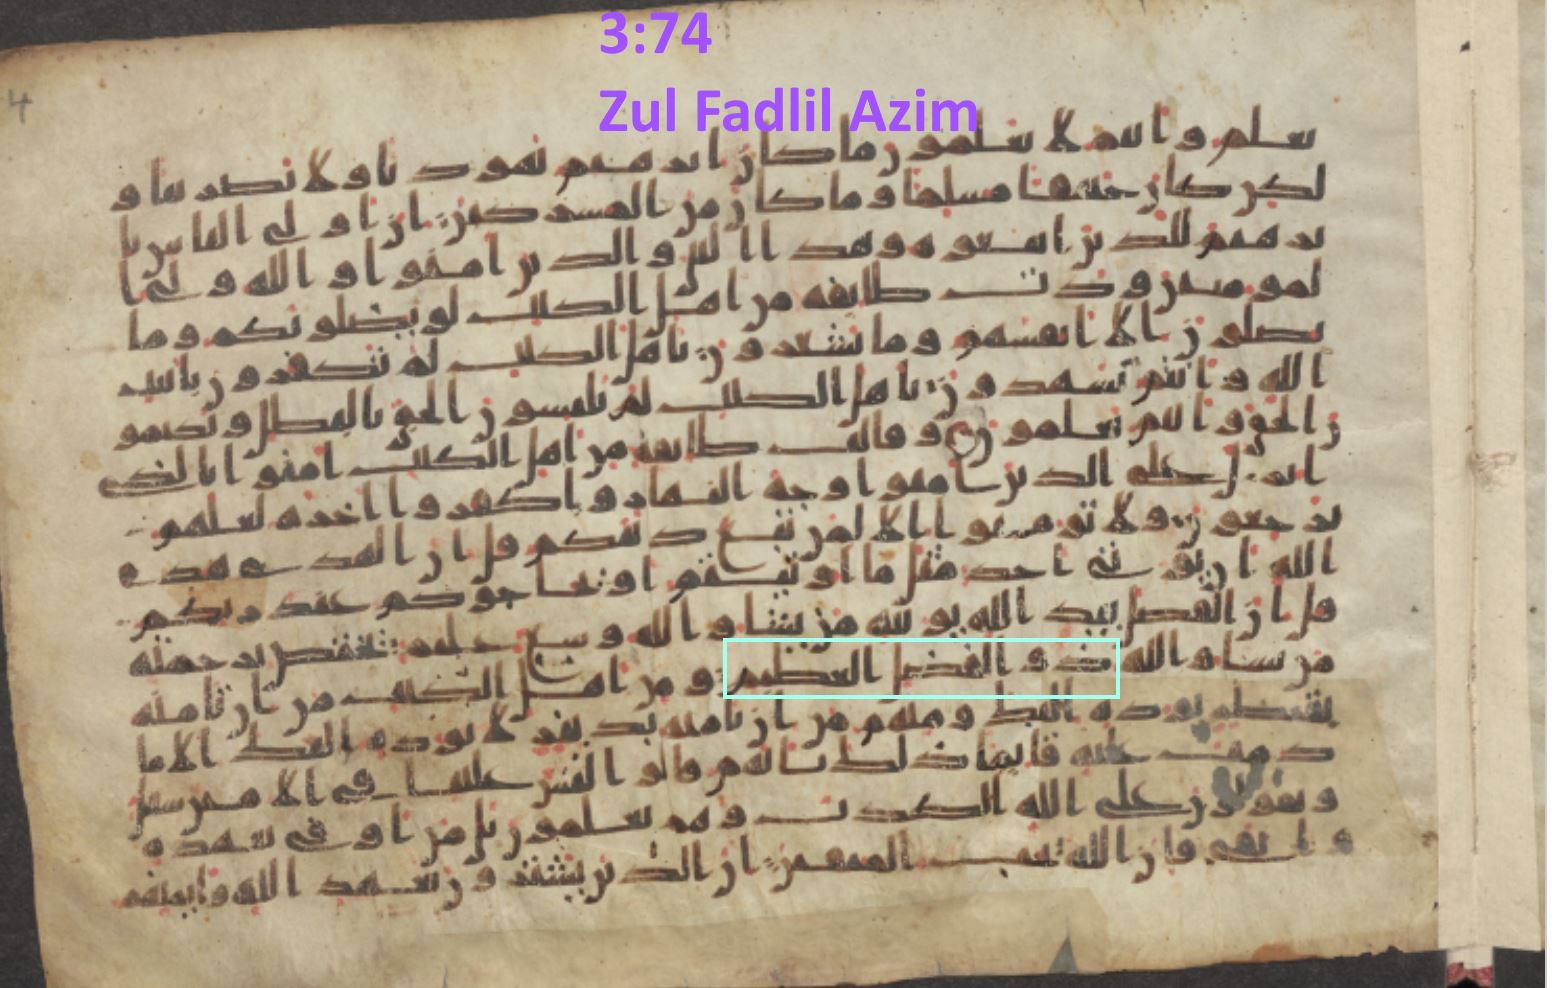 3:74
Zul Fadlil Azim
4
يعلم وانتم لا تعلمون ما كان ابرهيم يهوديا ولا نصرنيا و
لكن كان حنيفا مسلما وما كان من المشركين ان اولى الناس با
برهيم للذين اتبعوه وهذا النبي والذين امنوا والله ولي ا
لمومنين ودت طايفه من اهل الكتب لو يضلونكم وما
يضلون الا انفسهم وما يشعرون ياهل الكتب لم تكفرون بايت
الله وانتم تشهدون ياهل الكتب لم تلبسون الحق بالبطل وتكتمو
ن الحق وانتم تعلمون وقالت طايفه من اهل الكتب امنوا بالذي
انزل على الذين امنوا وجه النهار واكفروا اخره لعلهم
يرجعون ولا تومنوا الا لمن تبع دينكم قل ان الهدى هدى
الله ان يوتى احد مثل ما اوتيتم او يحاجوكم عند ربكم
قل ان الفضل بيد الله يوتيه من يشا والله وسع عليم يختص برحمته
من يشا والله ذو الفضل العظيم ومن اهل الكتب من ان تامنه
بقنطر يوده اليك ومنهم من ان تامنه بدينر لا يوده اليك الا ما
دمت عليه قايما ذلك بانهم قالوا ليس علينا في الامين سبيل
ويقولون على الله الكذب وهم يعلمون بلى من اوفى بعهده
واتقى فان الله يحب المتقين ان الذين يشترون بعهد الله وايمنهم